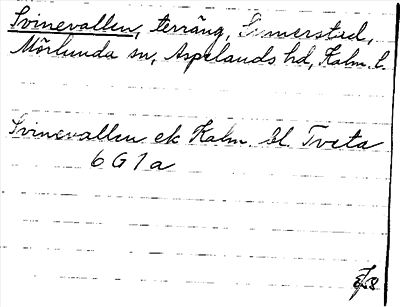 Svinevallen, terräng,
Mörlunda sn, Aspelands hd, Kalm. l.
Svinevallen ek Kalm. bl. Tveta
6 G 1 a